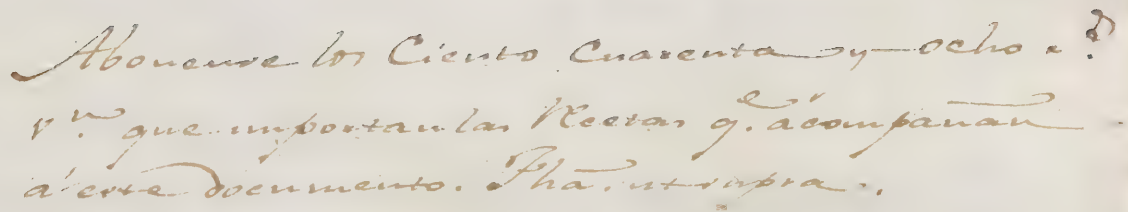 Abonense los Ciento Cuarenta y ocho r.s
v.n que importan las Recetas q.e acompañan
á este documento. Fha. ut supra.